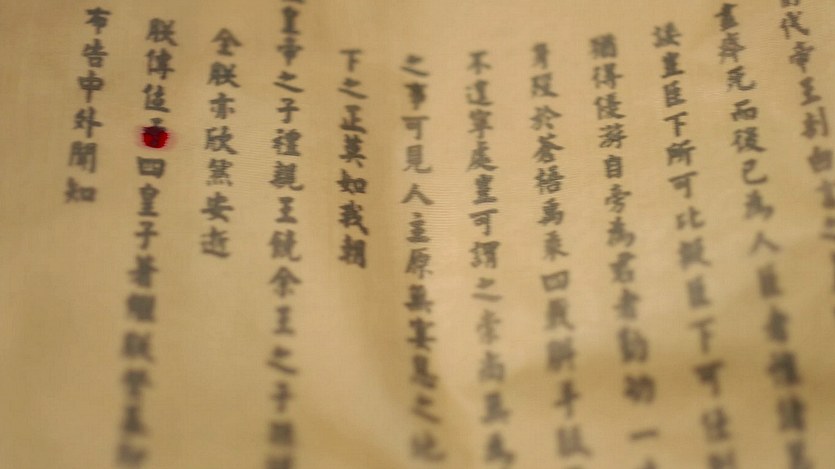 代帝王
死而後已為人臣者惟諸
諉豈臣下所可比擬臣下可仕則
猶得優游自為君者勤劬一
身歿於蒼梧禹乘四載胼手胝
不遑寧處豈可謂之崇尚無為
之事可見人主原無宴息之地
下之正莫如我朝
皇帝之子禮親王饒余王之子孫
全朕亦欣然安逝
朕傳位四皇子著繼朕登基
布告中外聞知